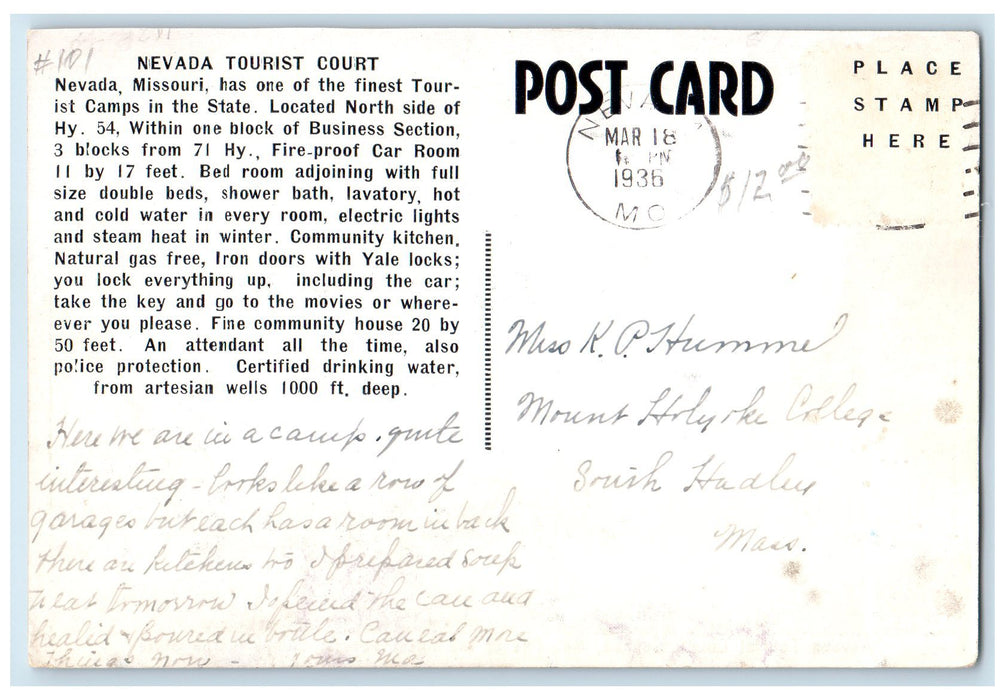 #101
NEVADA TOURIST COURT
Nevada, Missouri, has one of the finest Tour-
ist Camps in the State. Located North side of
Hy. 54, Within one block of Business Section,
3 blocks from 71 Hy., Fire-proof Car Room
11 by 17 feet. Bed room adjoining with full
size double beds, shower bath, lavatory, hot
and cold water in every room, electric lights
and steam heat in winter. Community kitchen,
Natural gas free, Iron doors with Yale locks;
you lock everything up, including the car;
take the key and go to the movies or where-
ever you please. Fine community house 20 by
50 feet. An attendant all the time, also
police protection. Certified drinking water,
from artesian wells 1000 ft. deep.
Here we are in a camp. quite
interesting - looks like a row of
garages but each has a room in back
there are kitchens too I prepared soup
to eat tomorrow I opened the can and
heated & poured in bottle. Can eat more
things now - Yours Ma
POST CARD
PLACE
STAMP
HERE
NEVADA
MAR 18
PM
1936
MO
$12.00
Miss K. P. Hummel
Mount Holyoke College
South Hadley
Mass.